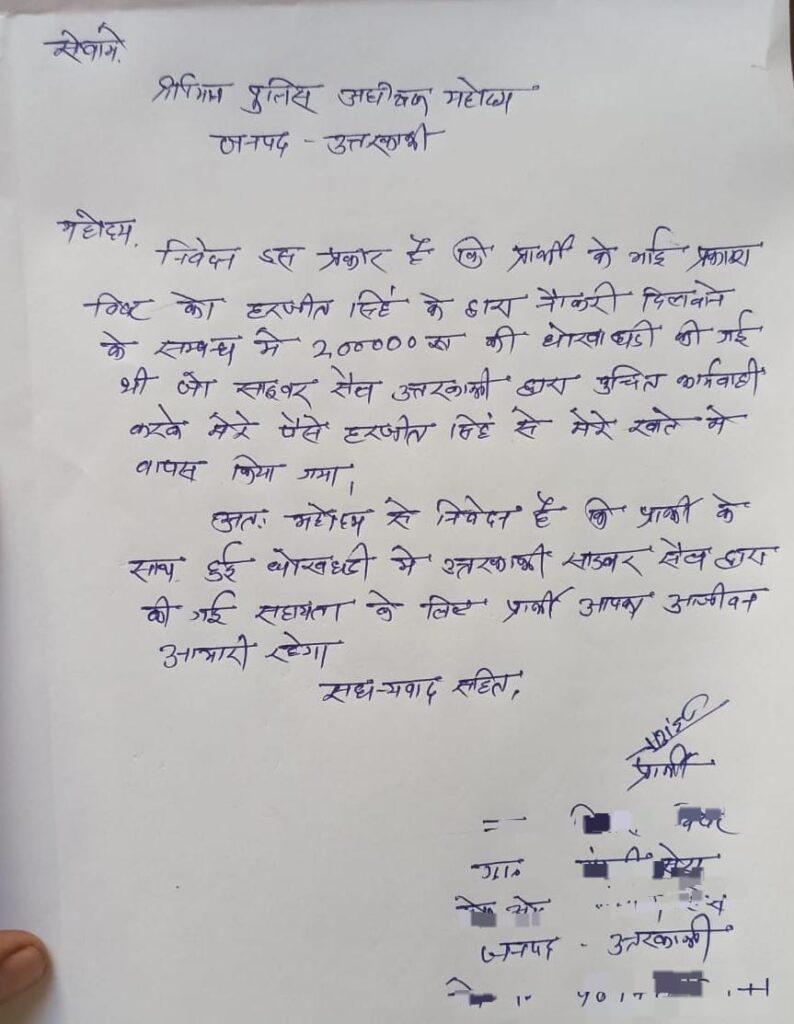 सेवामें,
श्रीमान पुलिस अधीक्षक महोदय
जनपद - उत्तरकाशी
महोदय,
निवेदन इस प्रकार है कि प्रार्थी के भाई प्रकाश
बिष्ट को हरजीत सिंह के द्वारा नौकरी दिलवाने
के सम्बन्ध मे 200000 रू की धोखाधडी की गई
थी जो साइबर सैल उत्तरकाशी द्वारा उचित कार्यवाही
करके मेरे पैसे हरजीत सिंह से मेरे खाते मे
वापस किया गया।
अतः महोदय से निवेदन है कि प्रार्थी के
साथ हुई धोखाधडी मे उत्तरकाशी साइबर सैल द्वारा
की गई सहायता के लिए प्रार्थी आपका आजीवन
आभारी रहेगा
सधन्यवाद सहित,
प्रार्थी
ग्राम सेरा
जनपद - उत्तरकाशी